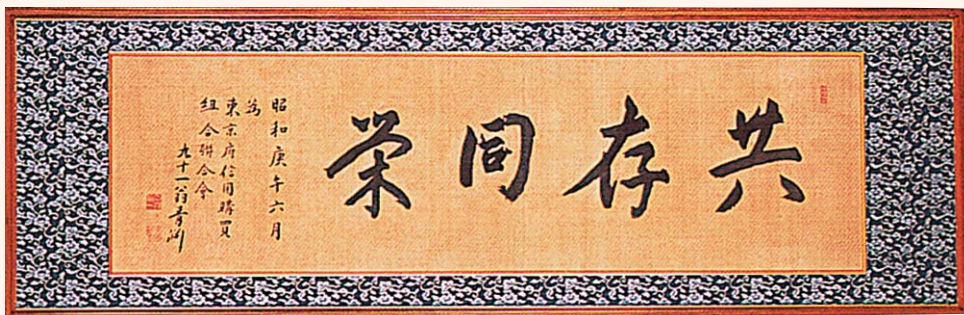 共存同栄
昭和庚午六月
為
東京府信用購買
組合聯合会
九十一翁青淵